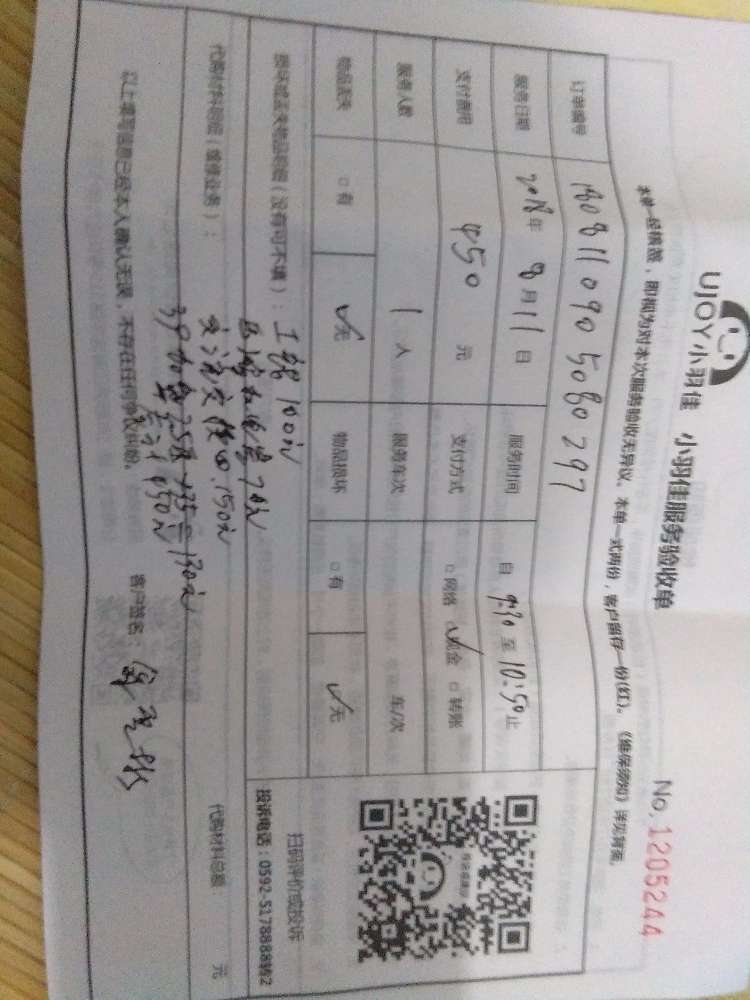 UJOY小羽佳 小羽佳服务验收单
No. 1205244
本单一经携签，即视为对本次服务验收无异议。本单一式两份，客户留存一份(红)。《维保须知》详见背面。
订单编号 180811090 5080297
服务日期 2018年 8月11日 服务时间 自 9:30 至 10:50止
支付费用 450 元 支付方式 □网络 ✓现金 □转账
服务人数 1 人 服务车次 车/次
物品丢失 □有 ✓无 物品损坏 □有 ✓无
扫码评价或投诉
投诉电话：0592-5178888转2
损坏或丢失物品明细（没有可不填）：
工 100元
70元
150元
代购材料明细（维修业务）：
130元
共计450元
代购材料总额： 元
以上填写信息已经本人确认无误，不存在任何争议纠纷。 客户签名：